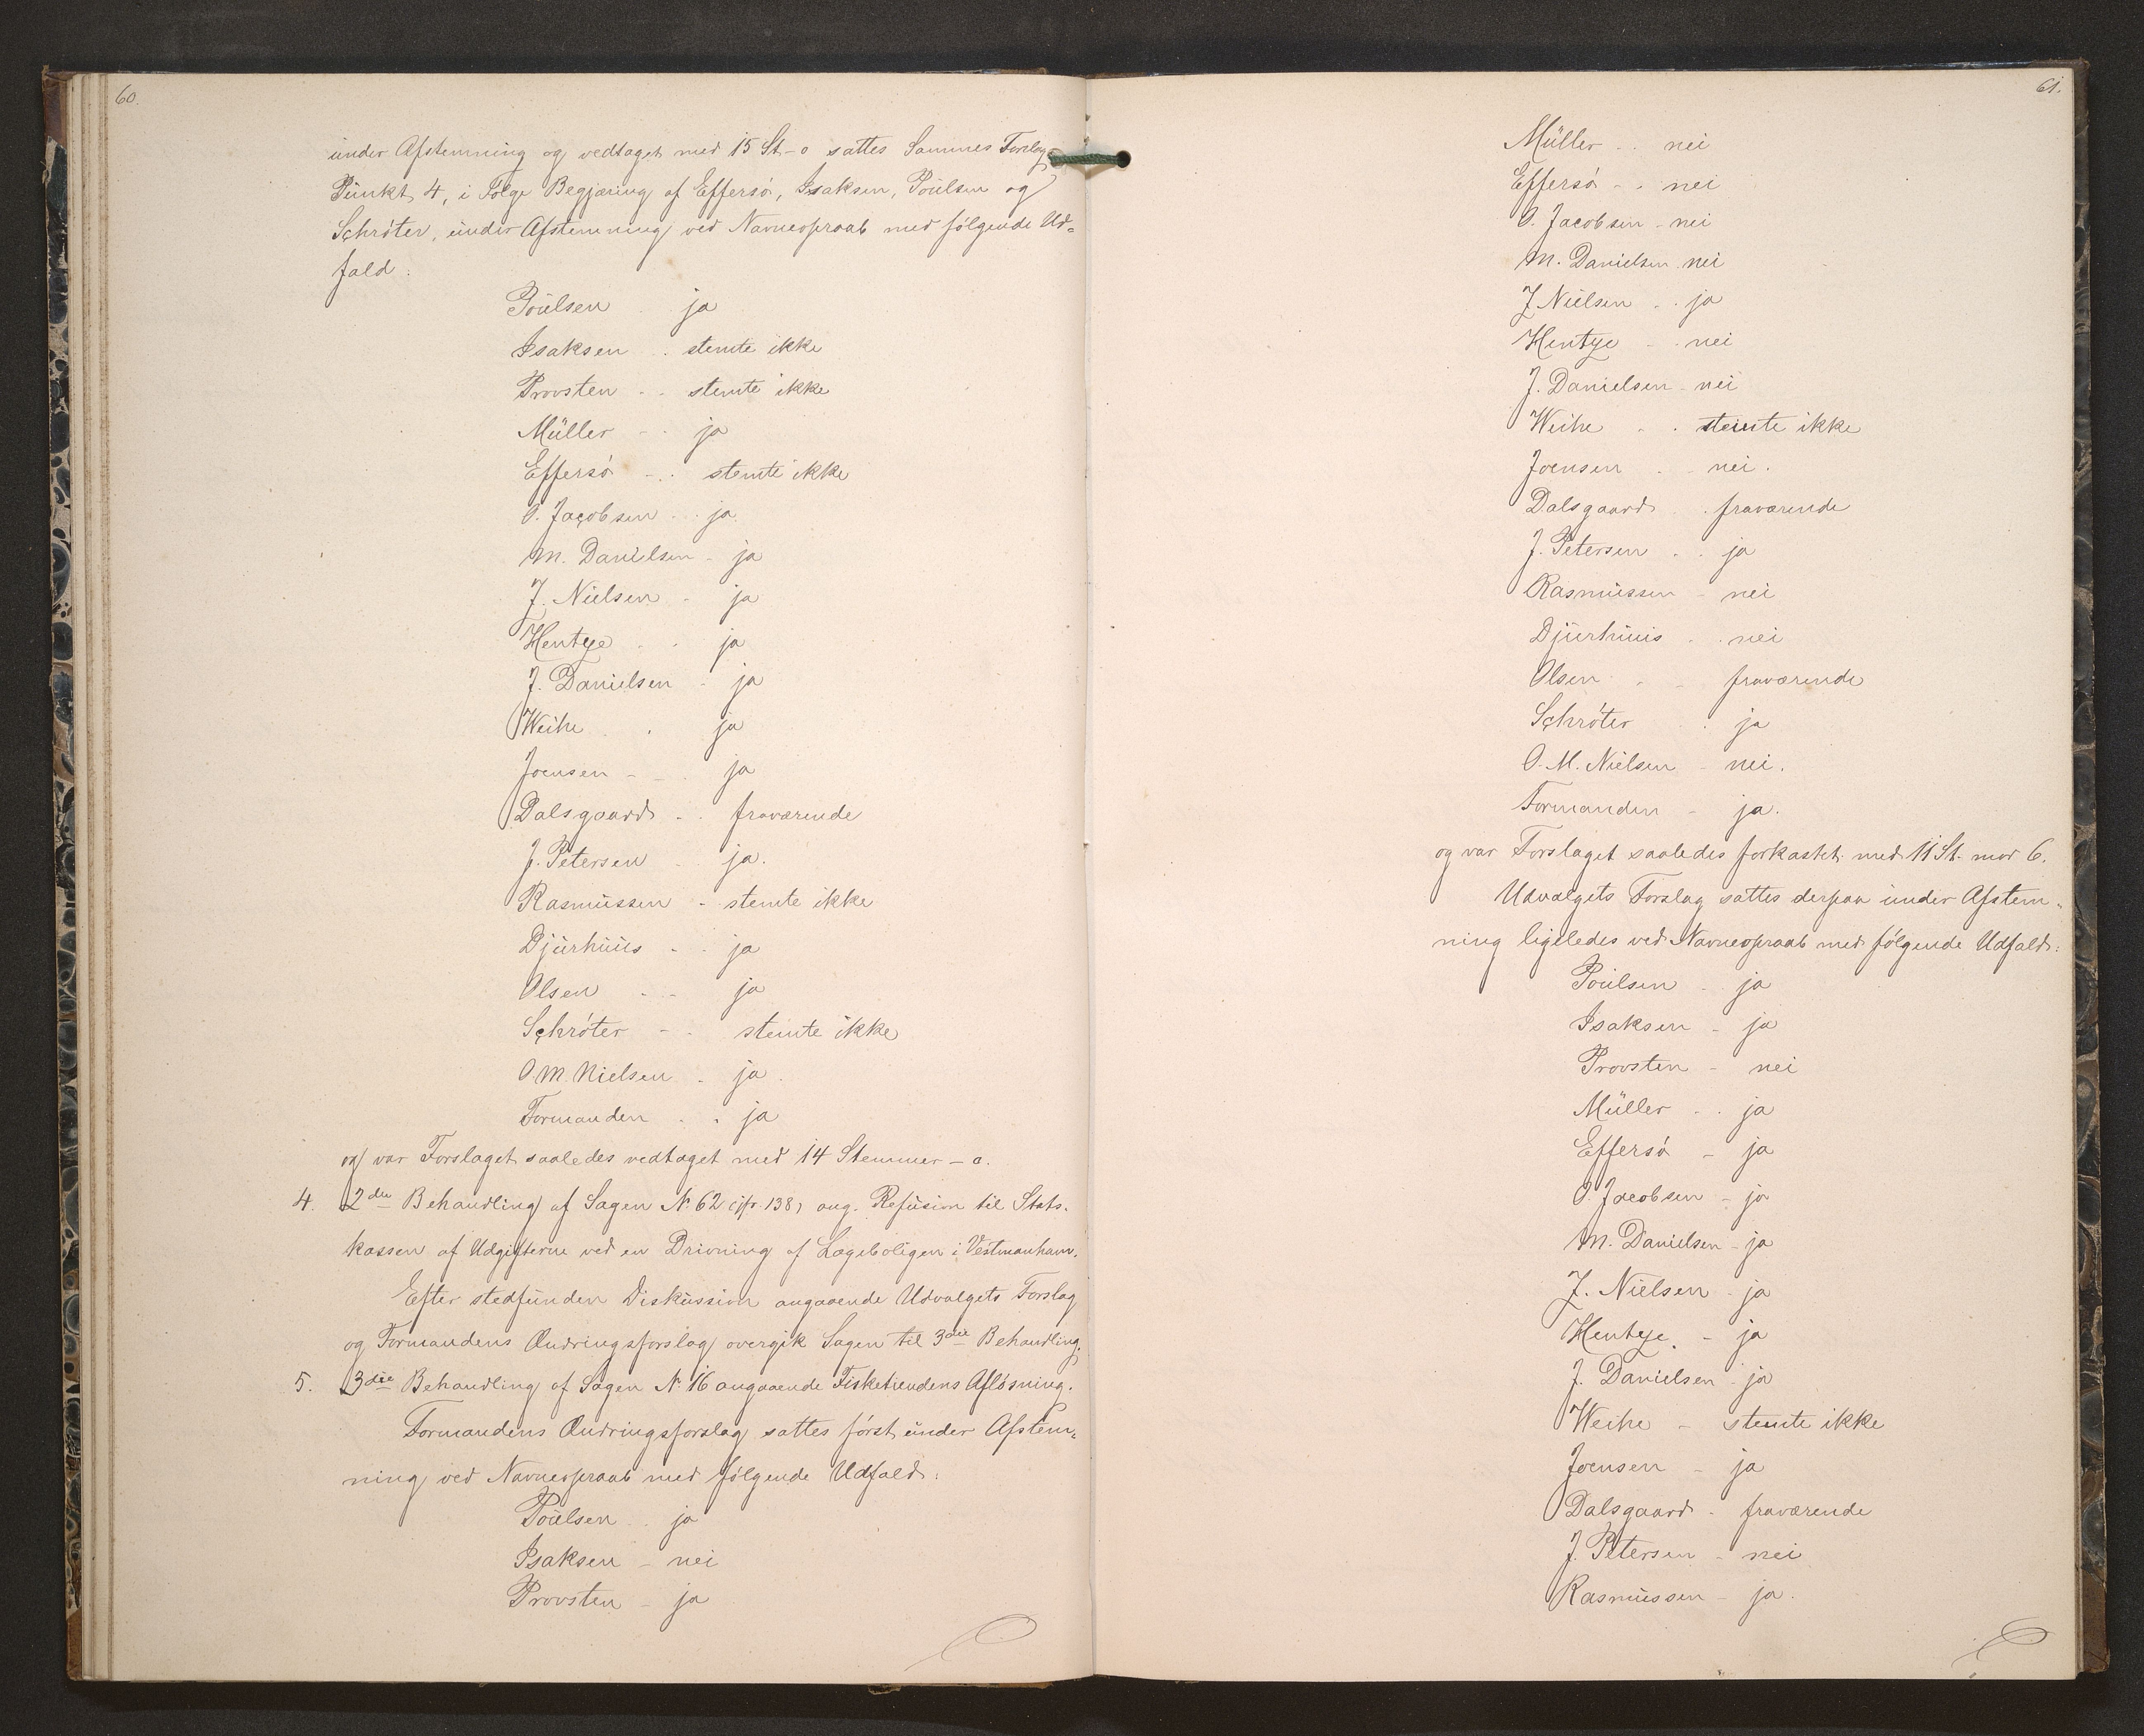 60.
under Afstemning og vedtaget med 15 St - 0 sattes Sammes Forslag
Punkt 4, i Følge Begjæring af Effersø, Isaksen, Poulsen og
Schrøter, under Afstemning ved Navneopraab med følgende Ud=
fald:
Poulsen . ja
Isaksen . stemte ikke
Provsten - - stemte ikke
Müller - . ja
Effersø - . . stemte ikke
O. Jacobsen . . ja
M. Danielsen - ja
J. Nielsen - ja
Hentze . . ja
J. Danielsen - ja
Weihe . . ja
Joensen - - . ja
Dalsgaard - . fraværende
J. Petersen - ja.
Rasmussen - stemte ikke
Djurhuus - . ja
Olsen - - ja
Schrøter - - stemte ikke
O. M. Nielsen . ja.
Formanden . . ja
og var Forslaget saaledes vedtaget med 14 Stemmer - 0.
4. 2den Behandling af Sagen N. 62 (jfr. 138) ang. Refusion til Stats-
kassen af Udgifterne ved en Drivning af Lægeboligen i Vestmanhavn.
Efter stedfunden Diskussion angaaende Udvalgets Forslag
og Formandens Ændringsforslag overgik Sagen til 3die Behandling.
5. 3die Behandling af Sagen N. 16 angaaende Fisketiendens Afløsning.
Formandens Ændringsforslag sattes først under Afstem=
ning ved Navneopraab med følgende Udfald:
Poulsen . . ja
Isaksen - nei
Provsten - ja
61.
Müller . . nei
Effersø - . nei
O. Jacobsen - nei
M. Danielsen . nei
J. Nielsen . . ja
Hentze - . nei
J. Danielsen - nei
Weihe . . stemte ikke
Joensen . - nei.
Dalsgaard . . fraværende
J. Petersen . . ja
Rasmussen - nei
Djurhuus . . nei
Olsen . - fraværende
Schrøter . ja
O. M. Nielsen - nei.
Formanden - ja.
og var Forslaget saaledes forkastet med 11 St. mod 6.
Udvalgets Forslag sattes derpaa under Afstem=
ning ligeledes ved Navneopraab med følgende Udfald:
Poulsen - ja
Isaksen - ja
Provsten - nei
Müller . . ja
Effersø - ja
O. Jacobsen - ja
M. Danielsen - ja
J. Nielsen - ja
Hentze. - ja
J. Danielsen - ja
Weihe - stemte ikke
Joensen - ja
Dalsgaard - fraværende
J. Petersen - nei
Rasmussen - ja.